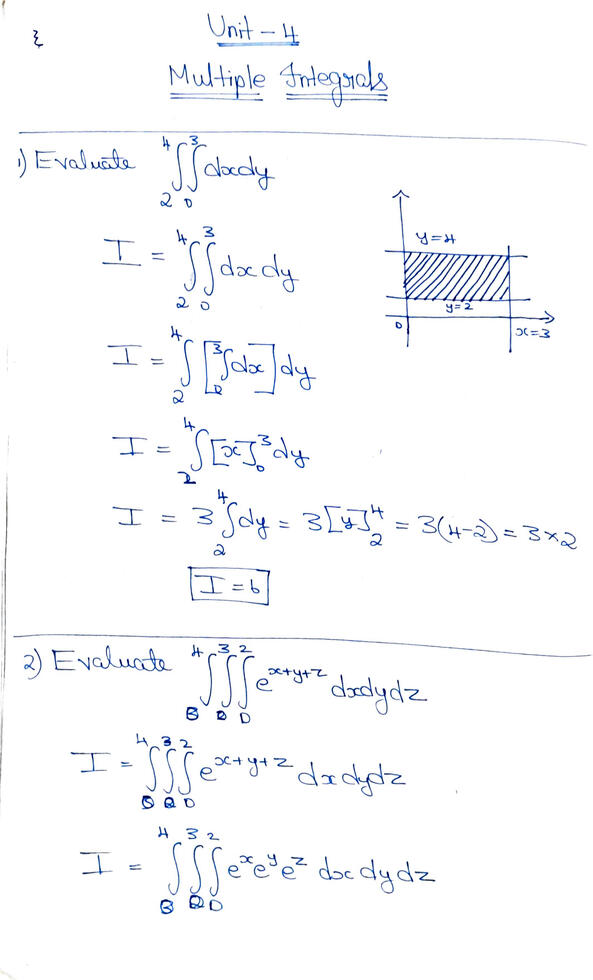 Unit - 4
Multiple Integrals
1) Evaluate ⁴∫₂ ³∫₀ dxdy
I = ⁴∫₂ ³∫₀ dx dy
y=4
y=2
0
x=3
I = ⁴∫₂ [³∫₀ dx] dy
I = ⁴∫₂ [x]³₀ dy
I = 3 ⁴∫₂ dy = 3[y]⁴₂ = 3(4-2) = 3×2
I = 6
2) Evaluate ⁴∫ ³∫ ²∫₀ e^(x+y+z) dxdydz
I = ⁴∫ ³∫ ²∫₀ e^(x+y+z) dx dy dz
I = ⁴∫ ³∫ ²∫₀ e^x e^y e^z dx dy dz